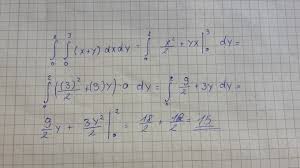 ∫₀² ∫₀³ (x+y) dx dy = ∫₀² x²/2 + yx |₀³ dy =
∫₀² ((3)²/2 + (3)y) - 0 dy = ∫₀² 9/2 + 3y dy =
9/2 y + 3y²/2 |₀² = 18/2 + 12/2 = 15